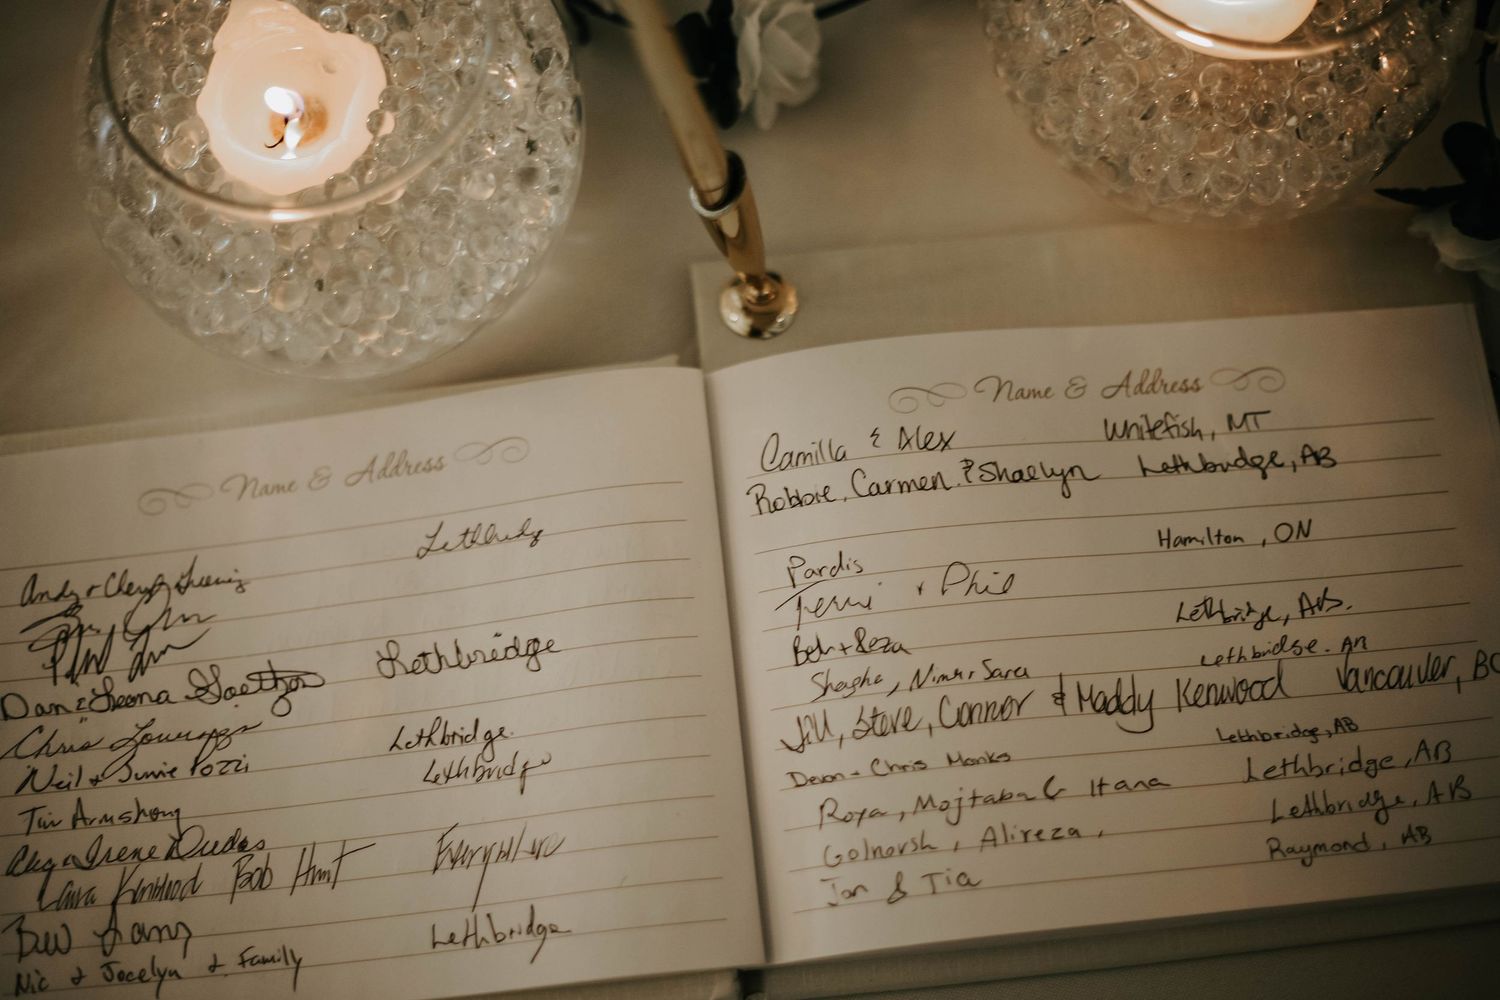 Name & Address
Lethbridge
Andy + Cheryl
Dan & Leona Lethbridge
Chris Lethbridge
Neil & Junie Pozzi Lethbridge
Tim Armstrong
Irene Dudas
Lara Kenwood Bob Hunt Everywhere
Bev
Nic & Jocelyn & Family Lethbridge
Name & Address
Camilla & Alex Whitefish, MT
Robbie, Carmen & Shaelyn Lethbridge, AB
Pardis Hamilton, ON
Terri + Phil
Beh + Reza Lethbridge, AB.
Nima, Sara Lethbridge. AB
Jill, Steve, Connor & Maddy Kenwood Vancouver, BC
Chris Monks Lethbridge, AB
Roya, Mojtaba & Hana Lethbridge, AB
Golnoosh, Alireza, Lethbridge, AB
Jon & Tia Raymond, AB